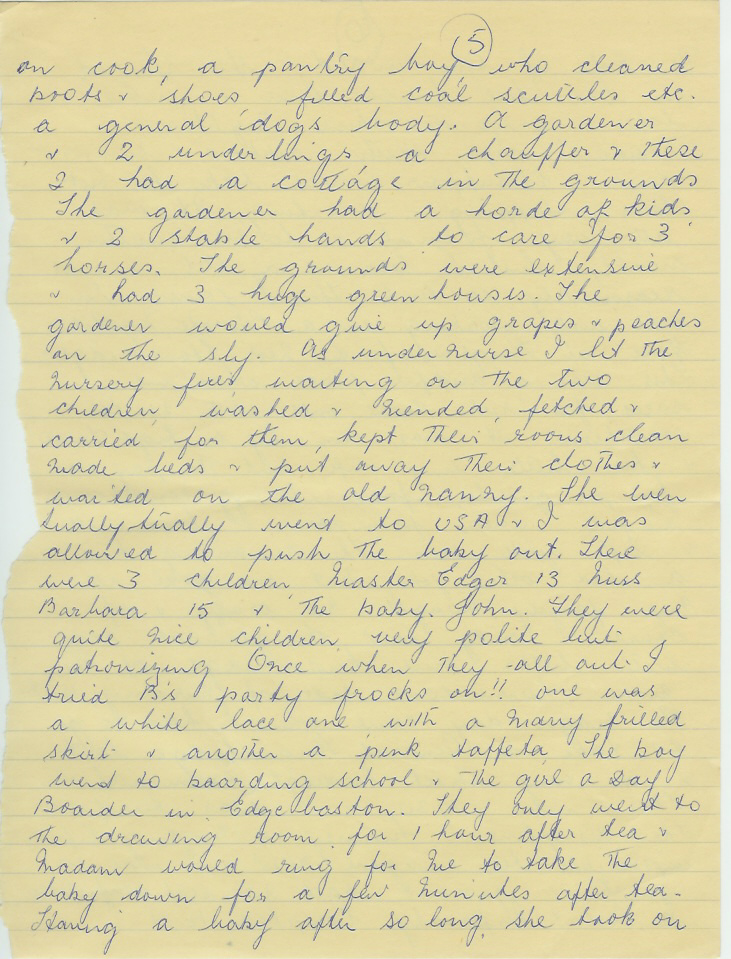 5
on cook, a pantry boy who cleaned
boots & shoes, filled coal scuttles etc.
a general dogs body. A gardener
& 2 underlings a chauffer & these
2 had a cottage in the grounds
The gardener had a horde of kids
& 2 stable hands to care for 3
horses. The grounds were extensive
& had 3 huge green houses. The
gardener would give up grapes & peaches
on the sly. As under nurse I lit the
nursery fires waiting on the two
children, washed & mended, fetched &
carried for them, kept their rooms clean
made beds & put away their clothes &
waited on the old nanny. She even
tually tually went to USA & I was
allowed to push the baby out. There
were 3 children, Master Edger 13 Miss
Barbara 15 & the baby. John. They were
quite nice children very polite but
patronizing Once when they all out I
tried B's party frocks on!! one was
a white lace one with a many frilled
skirt & another a pink taffeta. The boy
went to boarding school & the girl a Day
Boarder in Edgebaston. They only went to
the drawing room for 1 hour after tea &
Madam would ring for me to take the
baby down for a few minutes after tea.
Having a baby after so long she took on